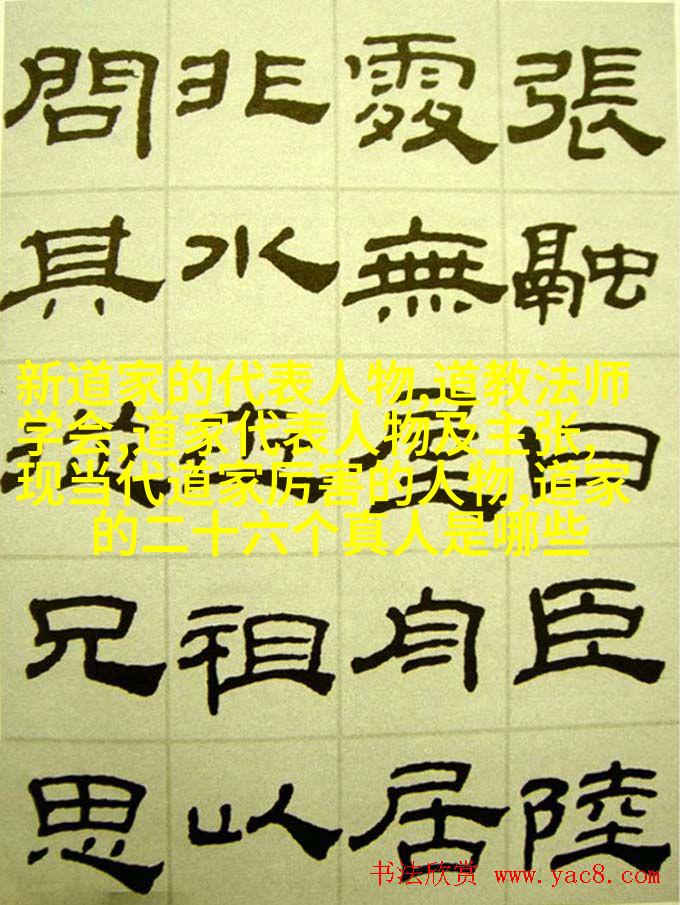 張融曰臣陸
處無屋舟居
非水祖以
問其兄思
新道家的代表人物,道教法师
学会,道家代表人物及主张,
现当代道家厉害的人物,道家
的二十六个真人是哪些
书法欣赏 www.yac8.com